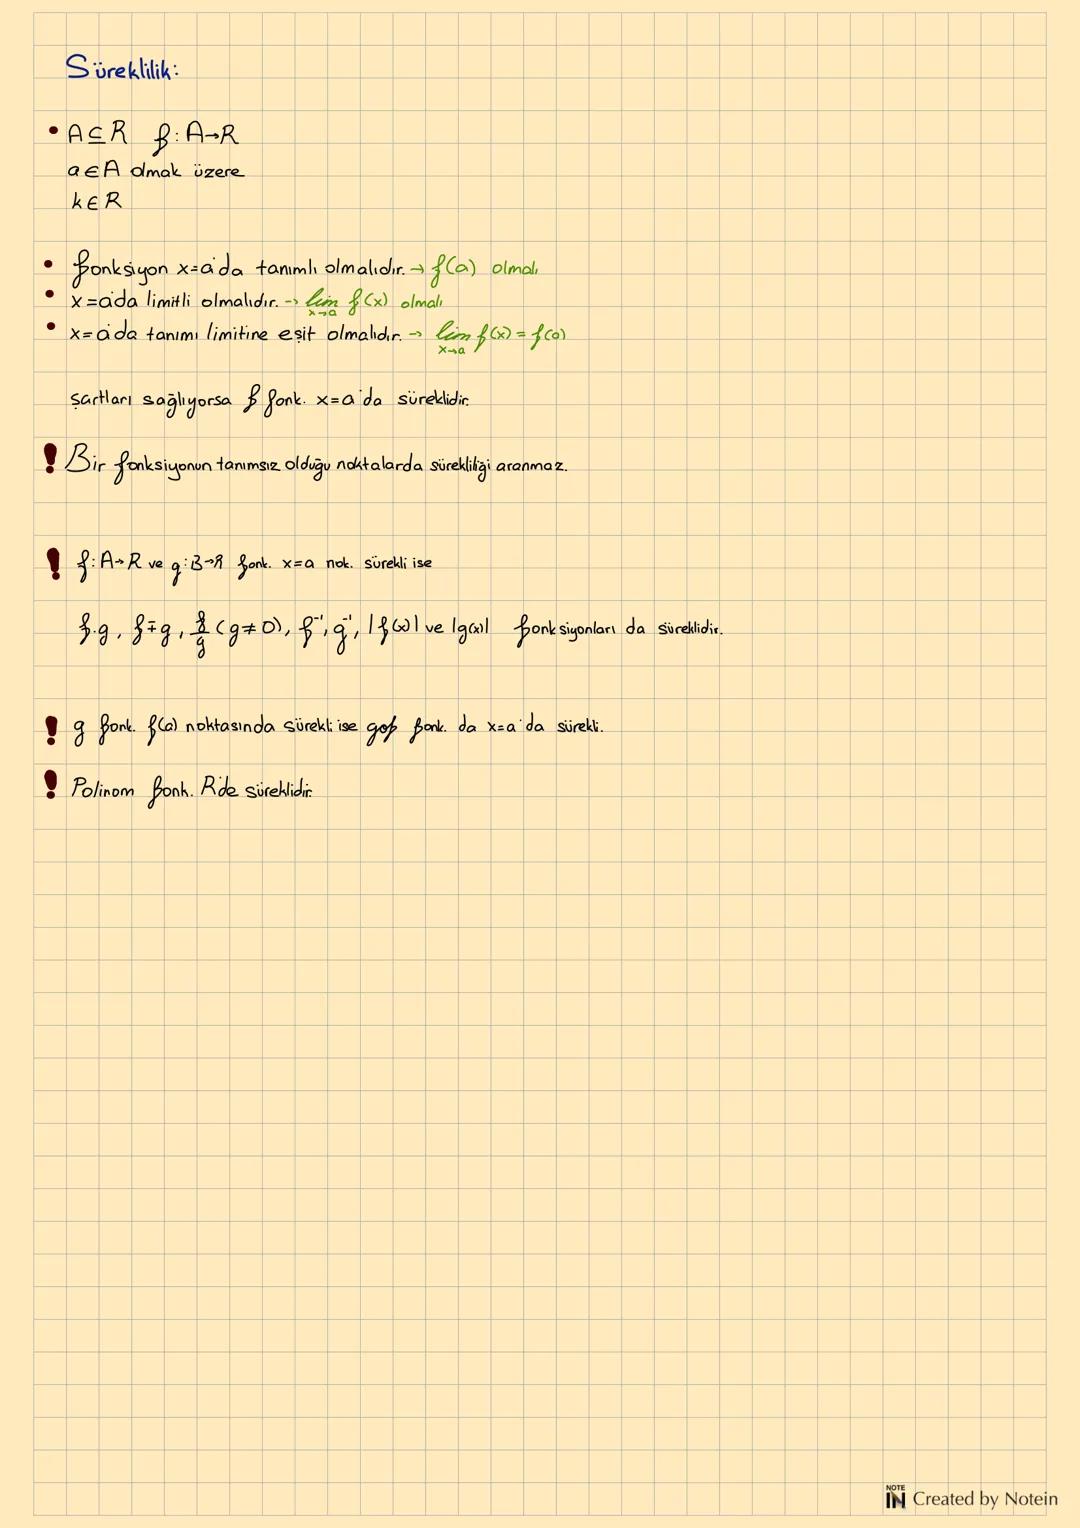 Süreklilik:
• A⊆R f:A→R
a∈A olmak üzere
k∈R
• fonksiyon x=a'da tanımlı olmalıdır. → f(a) olmalı
• x=a'da limitli olmalıdır. → lim f(x) olmalı
x→a
• x=a'da tanımı limitine eşit olmalıdır. → lim f(x) = f(a)
x→a
şartları sağlıyorsa f fonk. x=a'da süreklidir.
! Bir fonksiyonun tanımsız olduğu noktalarda sürekliliği aranmaz.
! f:A→R ve g:B→R fonk. x=a nok. sürekli ise
f.g, f∓g, f/g (g≠0), f⁻¹, g⁻¹, |f(x)| ve |g(x)| fonksiyonları da süreklidir.
! g fonk. f(a) noktasında sürekli ise gof fonk. da x=a'da sürekli.
! Polinom fonk. R'de süreklidir.
NOTE
IN Created by Notein